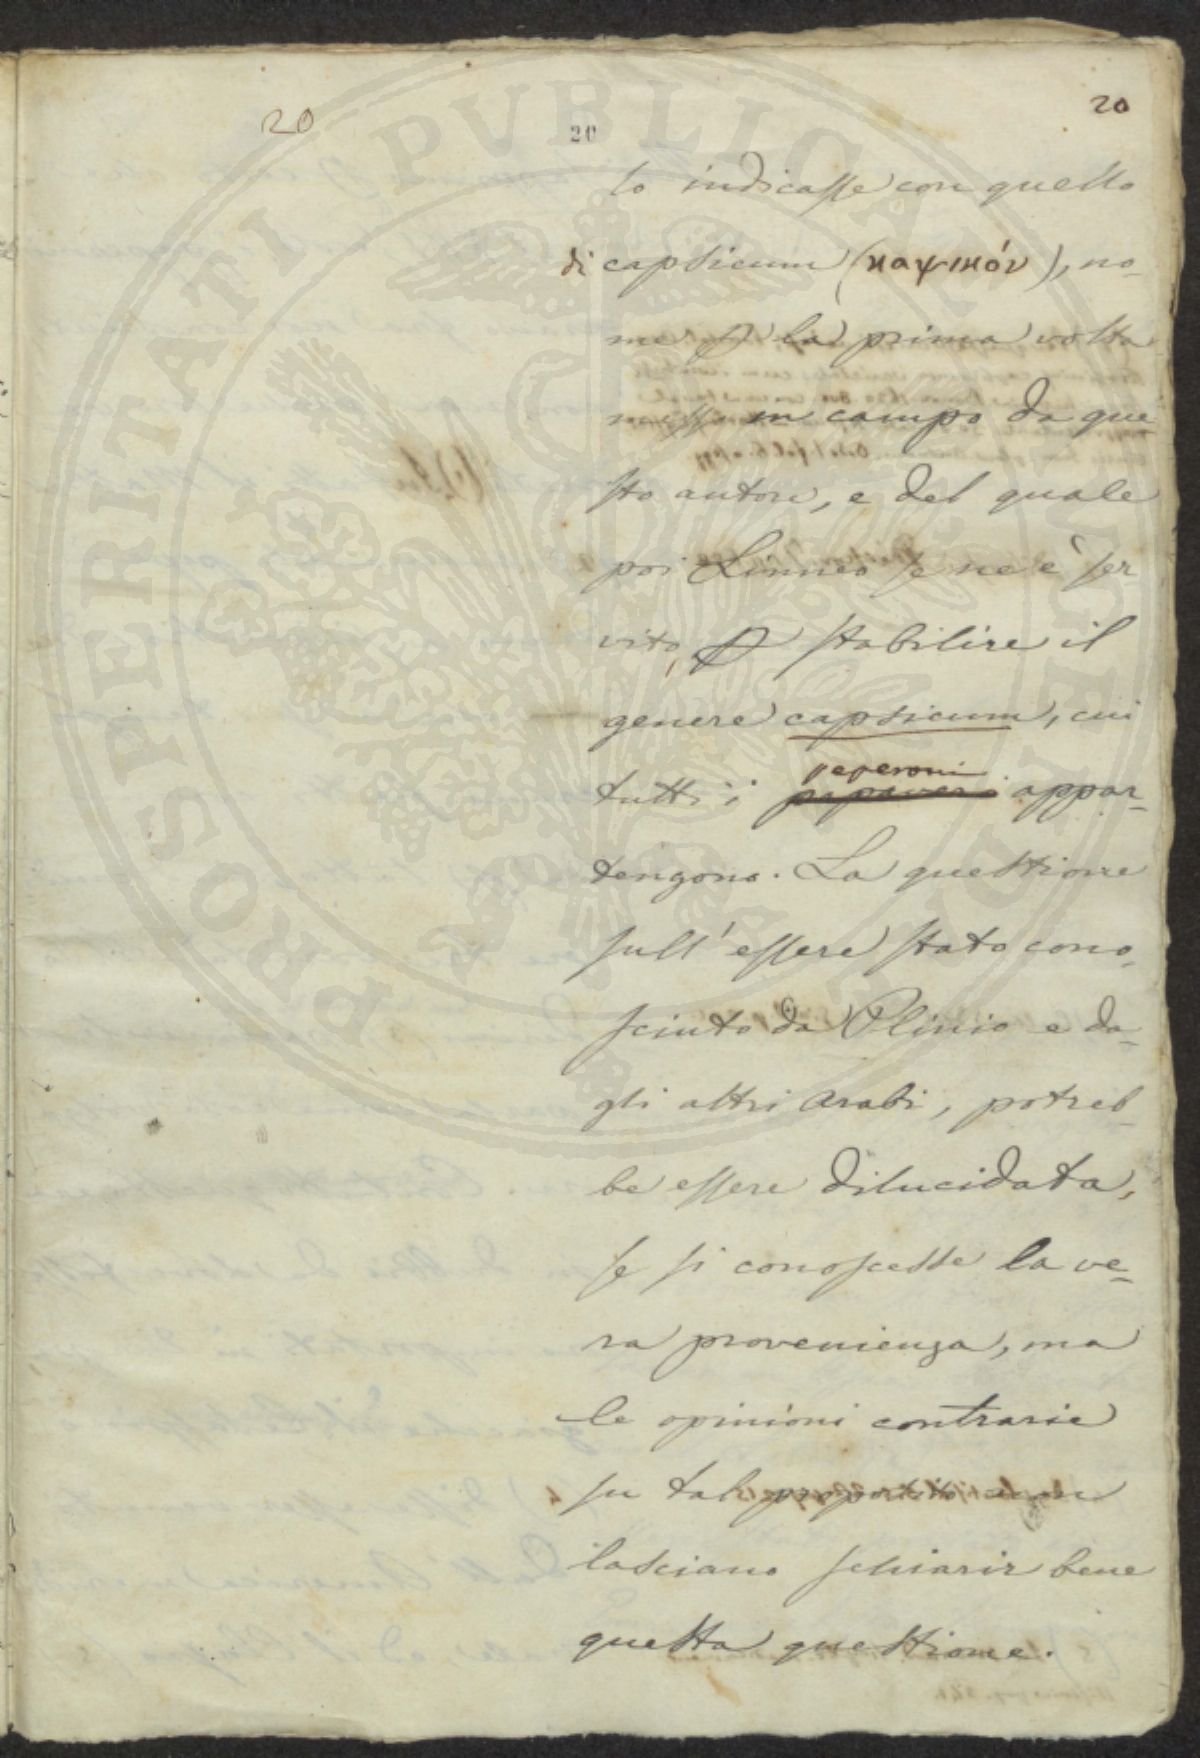 20
20
20
lo indicasse con quello
di capsicum (καψικόν), no-
me p la prima volta
messo in campo da que-
sto autore, e del quale
poi Linneo se ne è ser
vito, p stabilire il
genere capsicum, cui
peperoni
tutti i papaveri appar-
tengono. La questione
sull' essere stato cono-
sciuto da Plinio e da-
gli altri Arabi, potreb-
be essere dilucidata,
se si conoscesse la ve-
ra provenienza, ma
le opinioni contrarie
su tal proposito non
lasciano schiarir bene
questa questione.
PROSPERITATI PVBLICAE AVGENDAE